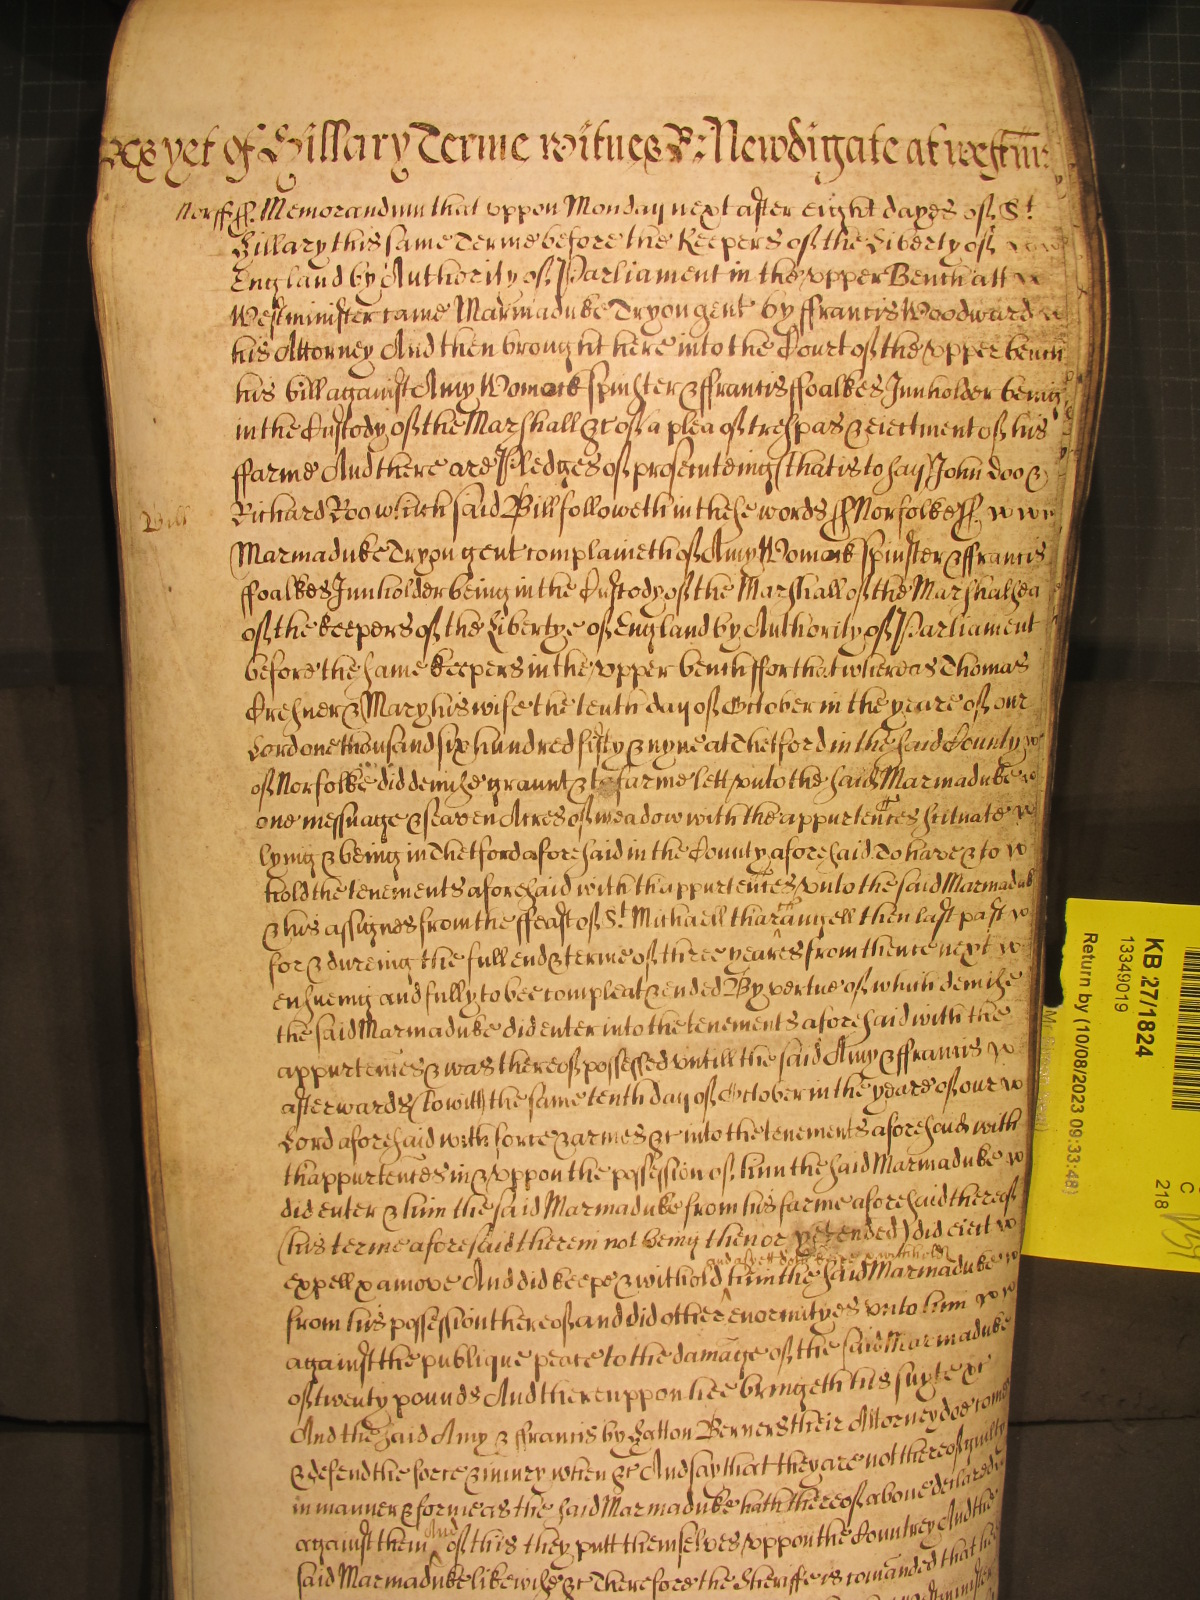 As yet of Hillary Terme witnes R: Newdigate at westm̄:
Norff ss. Memorandum that vppon Monday next after eight dayes of St
Hillary this same Terme before the Keepers of the Liberty of
England by Authority of Parliament in the vpper Bench att
Westminster came Marmaduke Tryon gent by ffrancis Woodward
his Attorney And then brought here into the Court of the vpper bench
his bill against Amy Womack spinster & ffrancis ffoalkes Innholder being
in the Custody of the Marshall &c of a plea of trespas & eiectment of his
ffarme And there are Pledges of prosecuteing (that is to say) John Doo &
Bill
Richard Roo which said Bill followeth in these words ss Norfolke ss.
Marmaduke Tryon gent complaineth of Amy Womack spinster & ffrancis
ffoalkes Innholder being in the Custody of the Marshall of the Marshalsea
of the keepers of the Libertye of England by Authority of Parliament
before the same keepers in the vpper bench ffor that whereas Thomas
Cresner & Mary his wife the tenth day of October in the yeare of our
Lord one thousand six hundred fifty & nyne at Thetford in the said County
of Norfolke did demise graunt & to farme lett vnto the said Marmaduke
one messuage & seaven Acres of meadow with the appurtences scituate
lying & being in Thetford aforesaid in the County aforesaid To have & to
hold the tenements aforesaid with thappurtences vnto the said Marmaduk
& his assignes from the ffeast of St. Michaell tharchangell then last past
for & dureing the full end & terme of three yeares from thence next
ensueing and fully to bee compleat & ended By vertue of which demise
the said Marmaduke did enter into the tenements aforesaid with the
appurtences & was thereof possessed vntill the said Amy & ffrancis
afterwards (to witt) the same tenth day of October in the yeare of our
Lord aforesaid with force & armes &c into the tenements aforesaid with
thappurtences in & vppon the possession of him the said Marmaduke
did enter & him the said Marmaduke from his farme aforesaid thereof
(his terme aforesaid therein not being then or yet ended) did eiect
and as yett doth keepe & withhold
expell & amove And did keepe & withold him the said Marmaduke
from his possession thereof and did other enormityes vnto him
against the publique peace to the damage of the said Marmaduke
of twenty pounds And therevppon hee bringeth his suyte &c
And the said Amy & ffrancis by Hatton Berners their Attorney doe come
& defend the force & iniury when &c And say that they are not thereof guilty
in manner & forme as the said Marmaduke hath thereof above declared
And
against them of this they putt themselves vppon the Countrey And the
said Marmaduke likewise &c Therefore the Sheriffe is comanded that hee
KB 27/1824
13349019
Return by (10/08/2023 09:33:48)
C
218